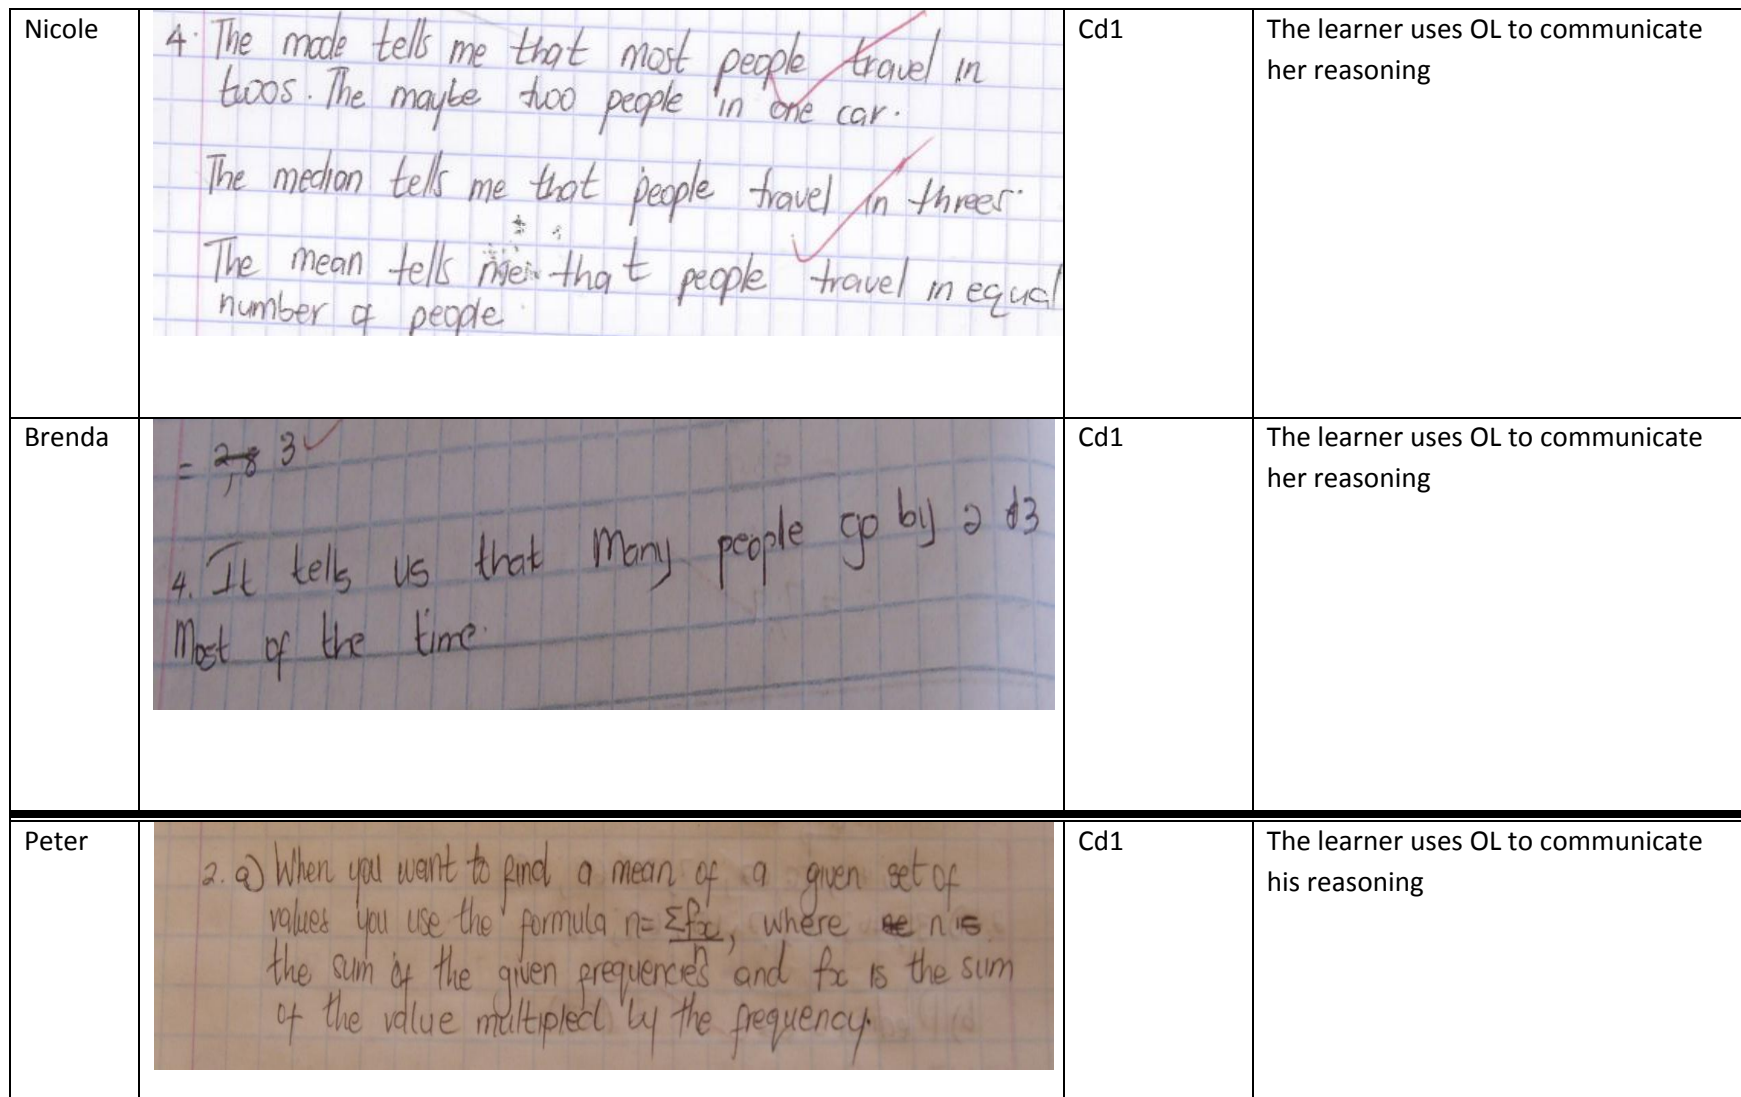 Nicole
4. The mode tells me that most people travel in
twos. The maybe two people in one car.
The median tells me that people travel in threes.
The mean tells me that people travel in equal
number of people
Cd1
The learner uses OL to communicate
her reasoning
Brenda
= 3
4. It tells us that Many people go by 2 3
Most of the time.
Cd1
The learner uses OL to communicate
her reasoning
Peter
2. a) When you want to find a mean of a given set of
values you use the formula n= Σfx/n, where n is
the sum of the given frequencies and fx is the sum
of the value multiplied by the frequency.
Cd1
The learner uses OL to communicate
his reasoning